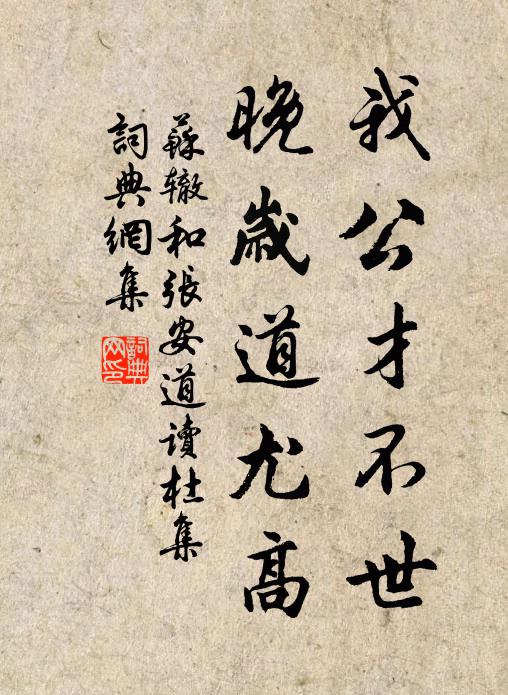 我公才不世
晚歲道尤高
蘇辙和張安道讀杜集
詞典網集
詞典網印